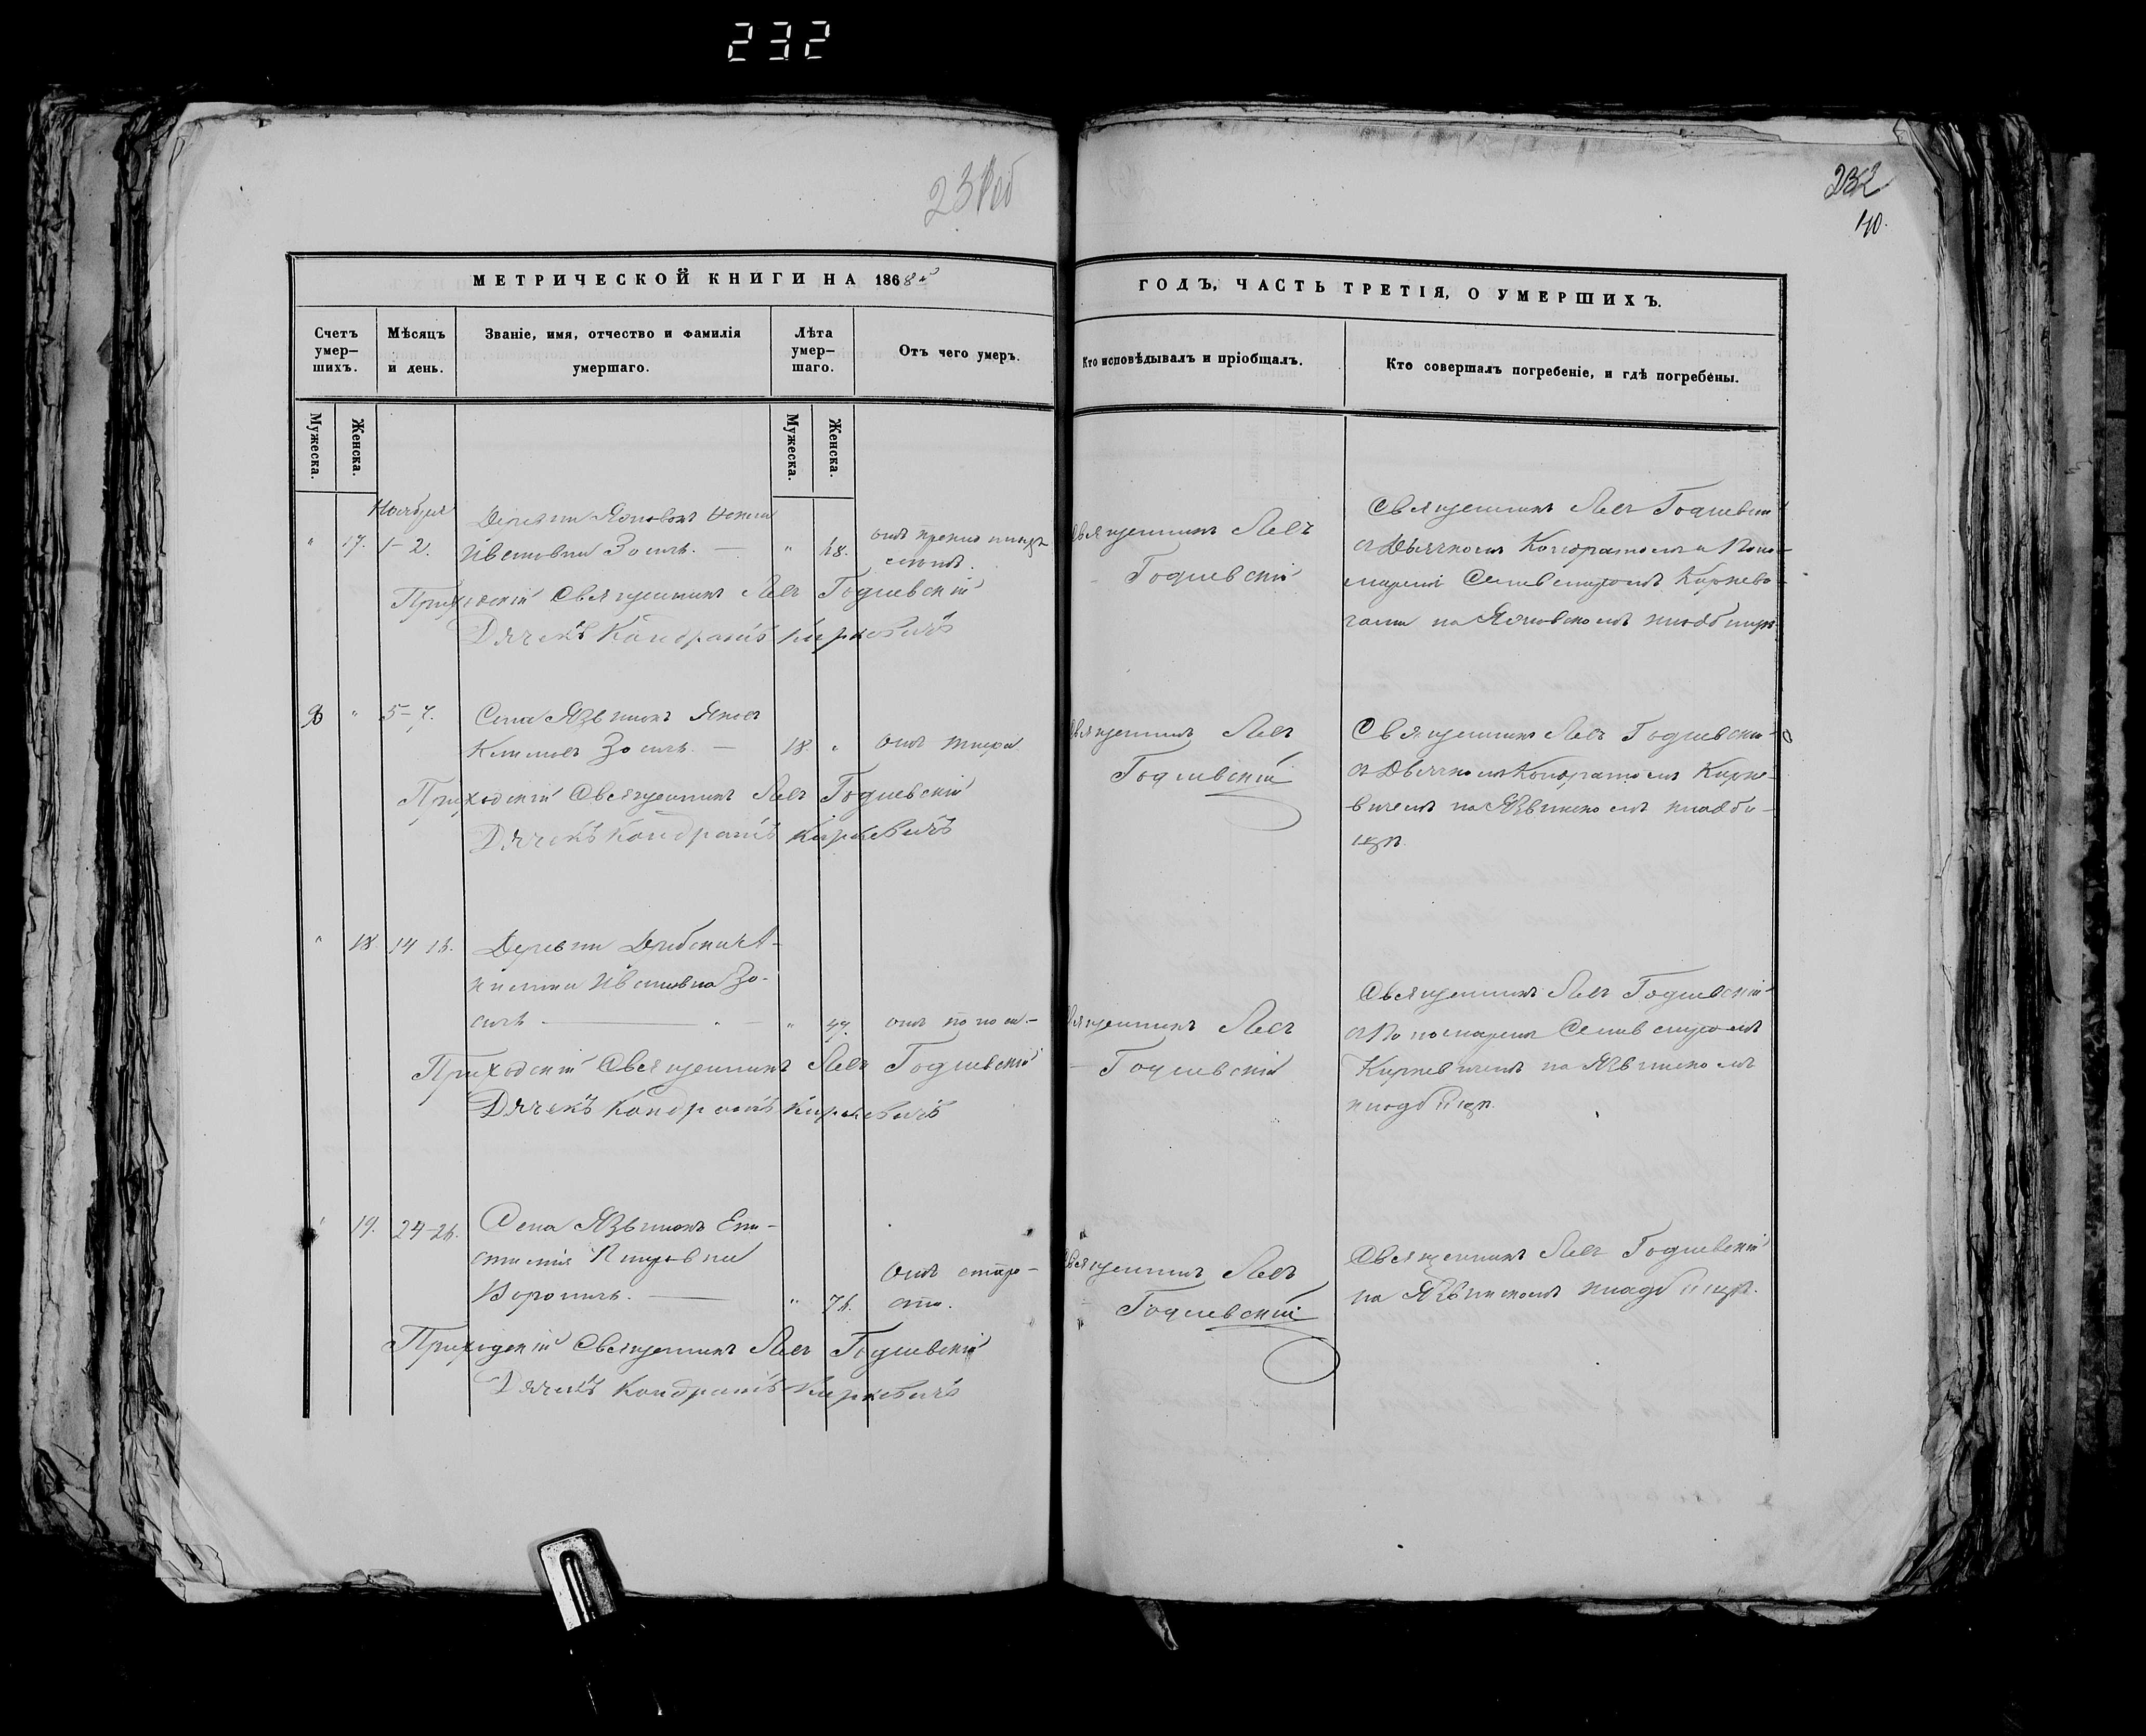 232
231об
232
110.
МЕТРИЧЕСКОЙ КНИГИ НА 1868й
ГОДЪ, ЧАСТЬ ТРЕТІЯ, О УМЕРШИХЪ.
Счетъ умер-шихъ.
Мѣсяцъ и день.
Званіе, имя, отчество и фамилія умершаго.
Лѣта умер-шаго.
Отъ чего умеръ.
Кто исповѣдывалъ и пріобщалъ.
Кто совершалъ погребеніе, и гдѣ погребены.
Мужеска.
Женска.
Мужеска.
Женска.
Ноября
" 17. 1-2.
Ивановна Зосичъ. — " 48.
Священникъ Левъ
Годлевскій
Священникъ Левъ Годлевскій
съ Дьячкомъ Кондратомъ и Поно-
маремъ Селивестромъ Киркеви-
чами на кладбищѣ
Приходскій Священникъ Левъ Годлевскій
Дячекъ Кондратъ Киркевичъ
" 5-7. Села Язвинокъ
Зосичъ. — 18. " отъ тифа
Священникъ Левъ
Годлевскій
Священникъ Левъ Годлевскій
съ Дьячкомъ Кондратомъ Кирке-
вичемъ на Язвинскомъ кладби-
щѣ.
Приходскій Священникъ Левъ Годлевскій
Дячекъ Кондратъ Киркевичъ
" 18. 14 15. Деревни
Ивановна Зо-
сичъ — " 47. отъ
Священникъ Левъ
Годлевскій
Священникъ Левъ Годлевскій
съ Пономаремъ Селивестромъ
Киркевичемъ на Язвинскомъ
кладбищѣ.
Приходскій Священникъ Левъ Годлевскій
Дячекъ Кондратъ Киркевичъ
19. 24-26. Села Язвинокъ
Петровна
— " отъ старо-
сти.
Священникъ Левъ
Годлевскій
Священникъ Левъ Годлевскій
на Язвинскомъ кладбищѣ.
Приходскій Священникъ Левъ Годлевскій
Дячекъ Кондратъ Киркевичъ